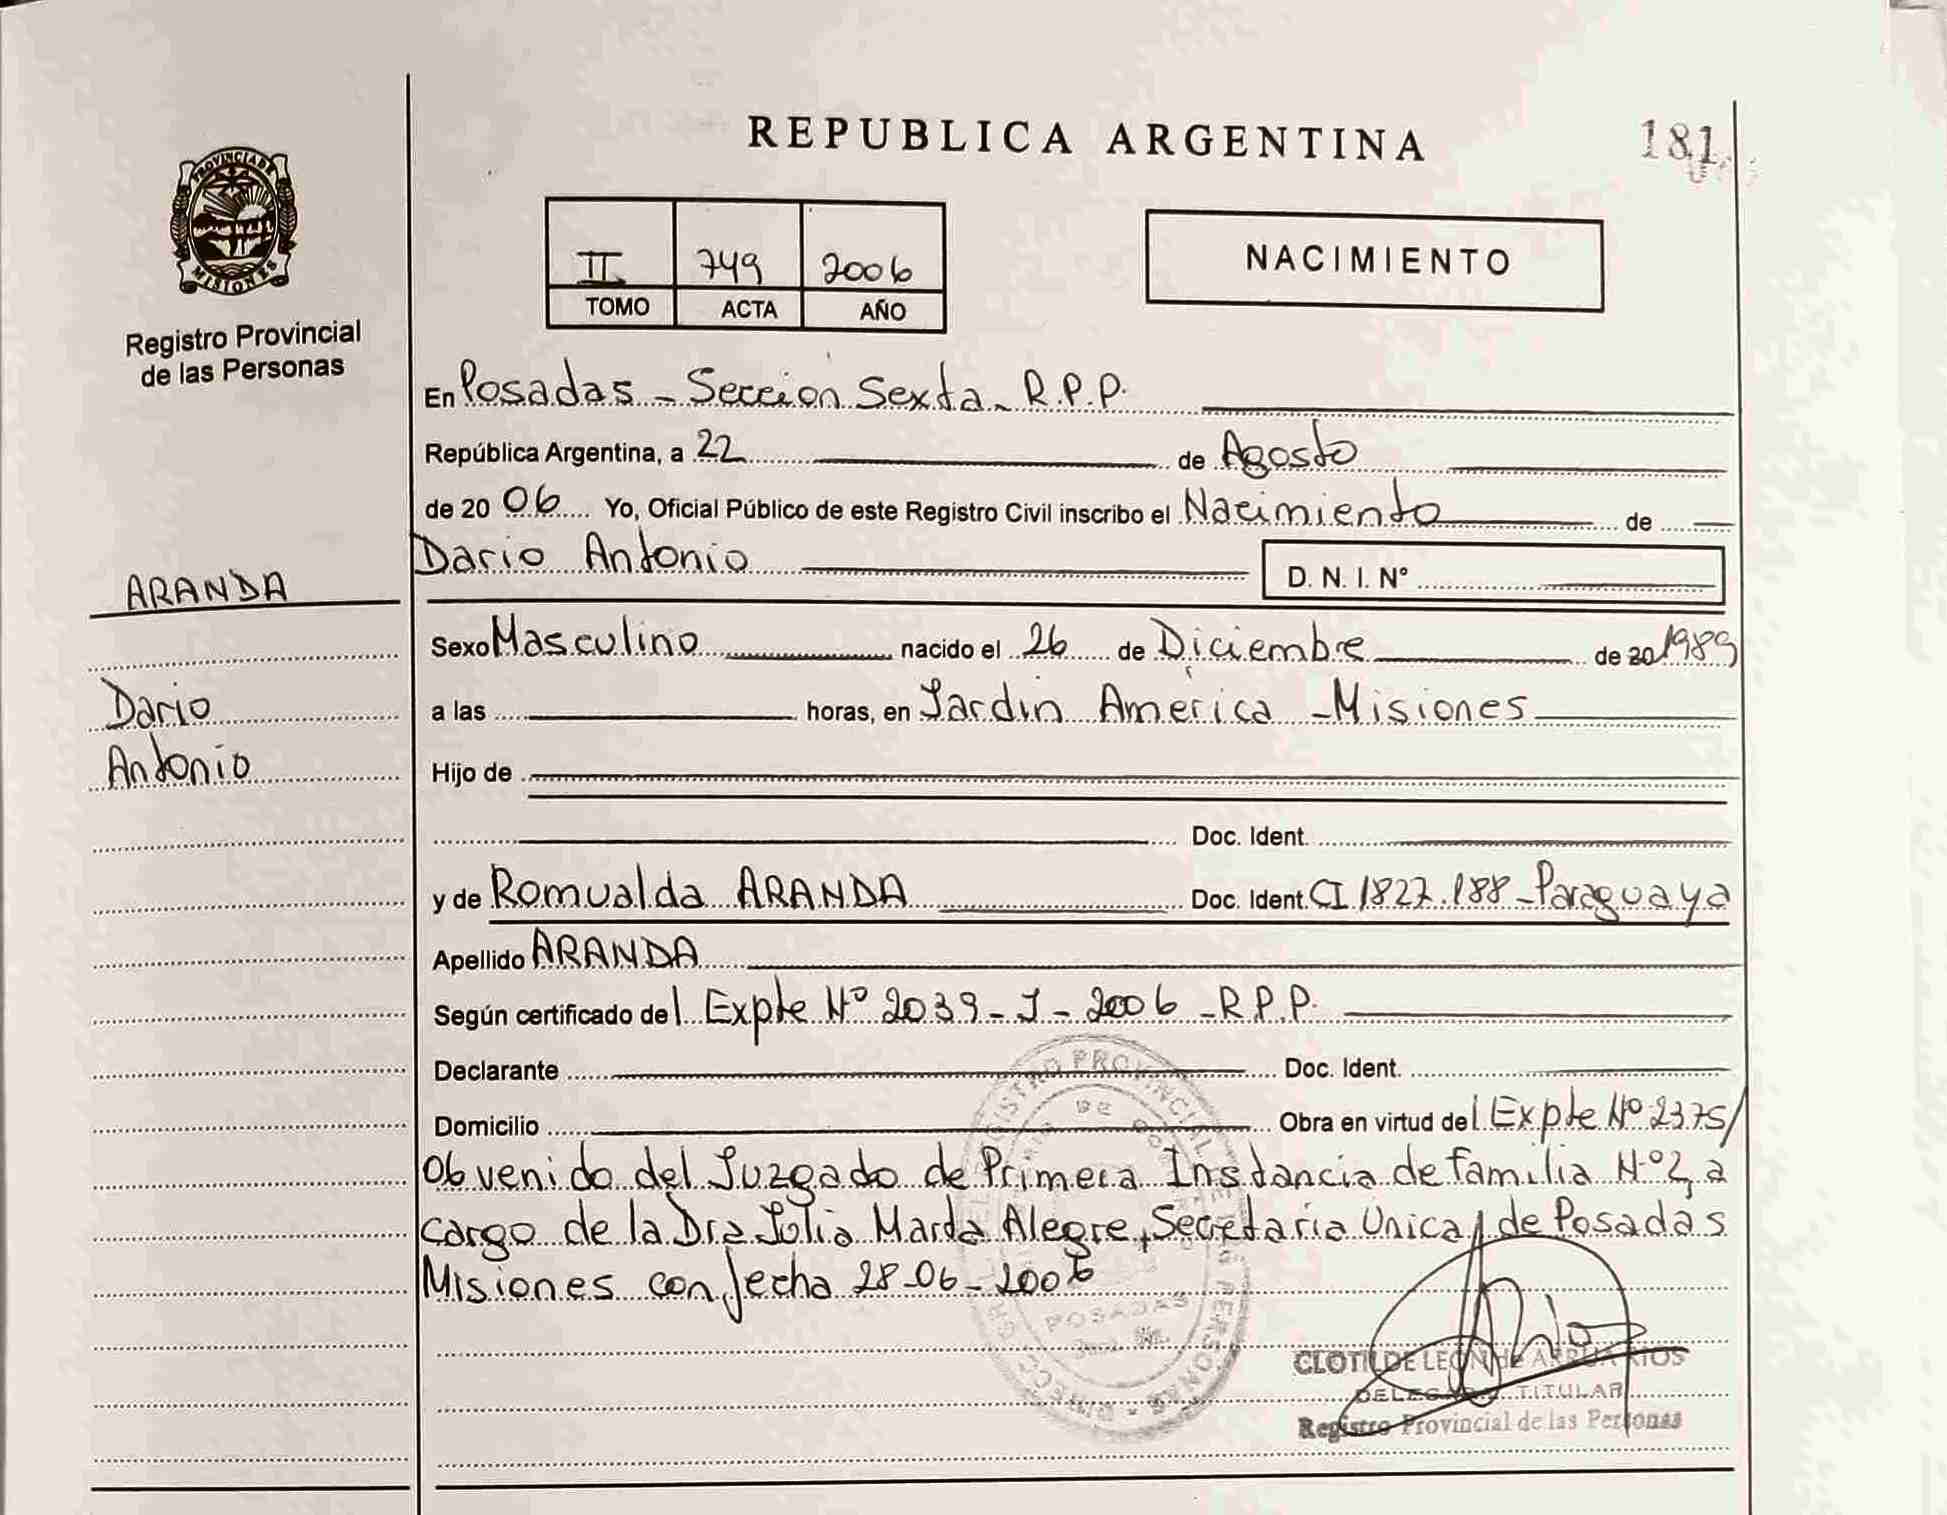 REPUBLICA ARGENTINA
181
PROVINCIA DE
MISIONES
Registro Provincial
de las Personas
II 749 2006
TOMO ACTA AÑO
NACIMIENTO
En Posadas - Sección Sexta - R.P.P.
República Argentina, a 22 de Agosto
de 2006 Yo, Oficial Público de este Registro Civil inscribo el Nacimiento de
Dario Antonio
D. N. I. N°
ARANDA
Dario
Antonio
Sexo Masculino nacido el 26 de Diciembre de 20 1989
a las horas, en Jardin América - Misiones
Hijo de
Doc. Ident.
y de Romualda ARANDA Doc. Ident. CI 1827.188 - Paraguaya
Apellido ARANDA
Según certificado del Expte Nº 2039 - J - 2006 - R.P.P.
Declarante Doc. Ident.
Domicilio Obra en virtud del Expte Nº 2375/
06 venido del Juzgado de Primera Instancia de familia Nº 2, a
cargo de la Dra Julia Marta Alegre, Secretaria Unica, de Posadas
Misiones con fecha 28-06-2006
REGISTRO PROVINCIAL DE LAS PERSONAS
POSADAS
CLOTILDE LEON de ARRUA RIOS
DELEGADA TITULAR
Registro Provincial de las Personas